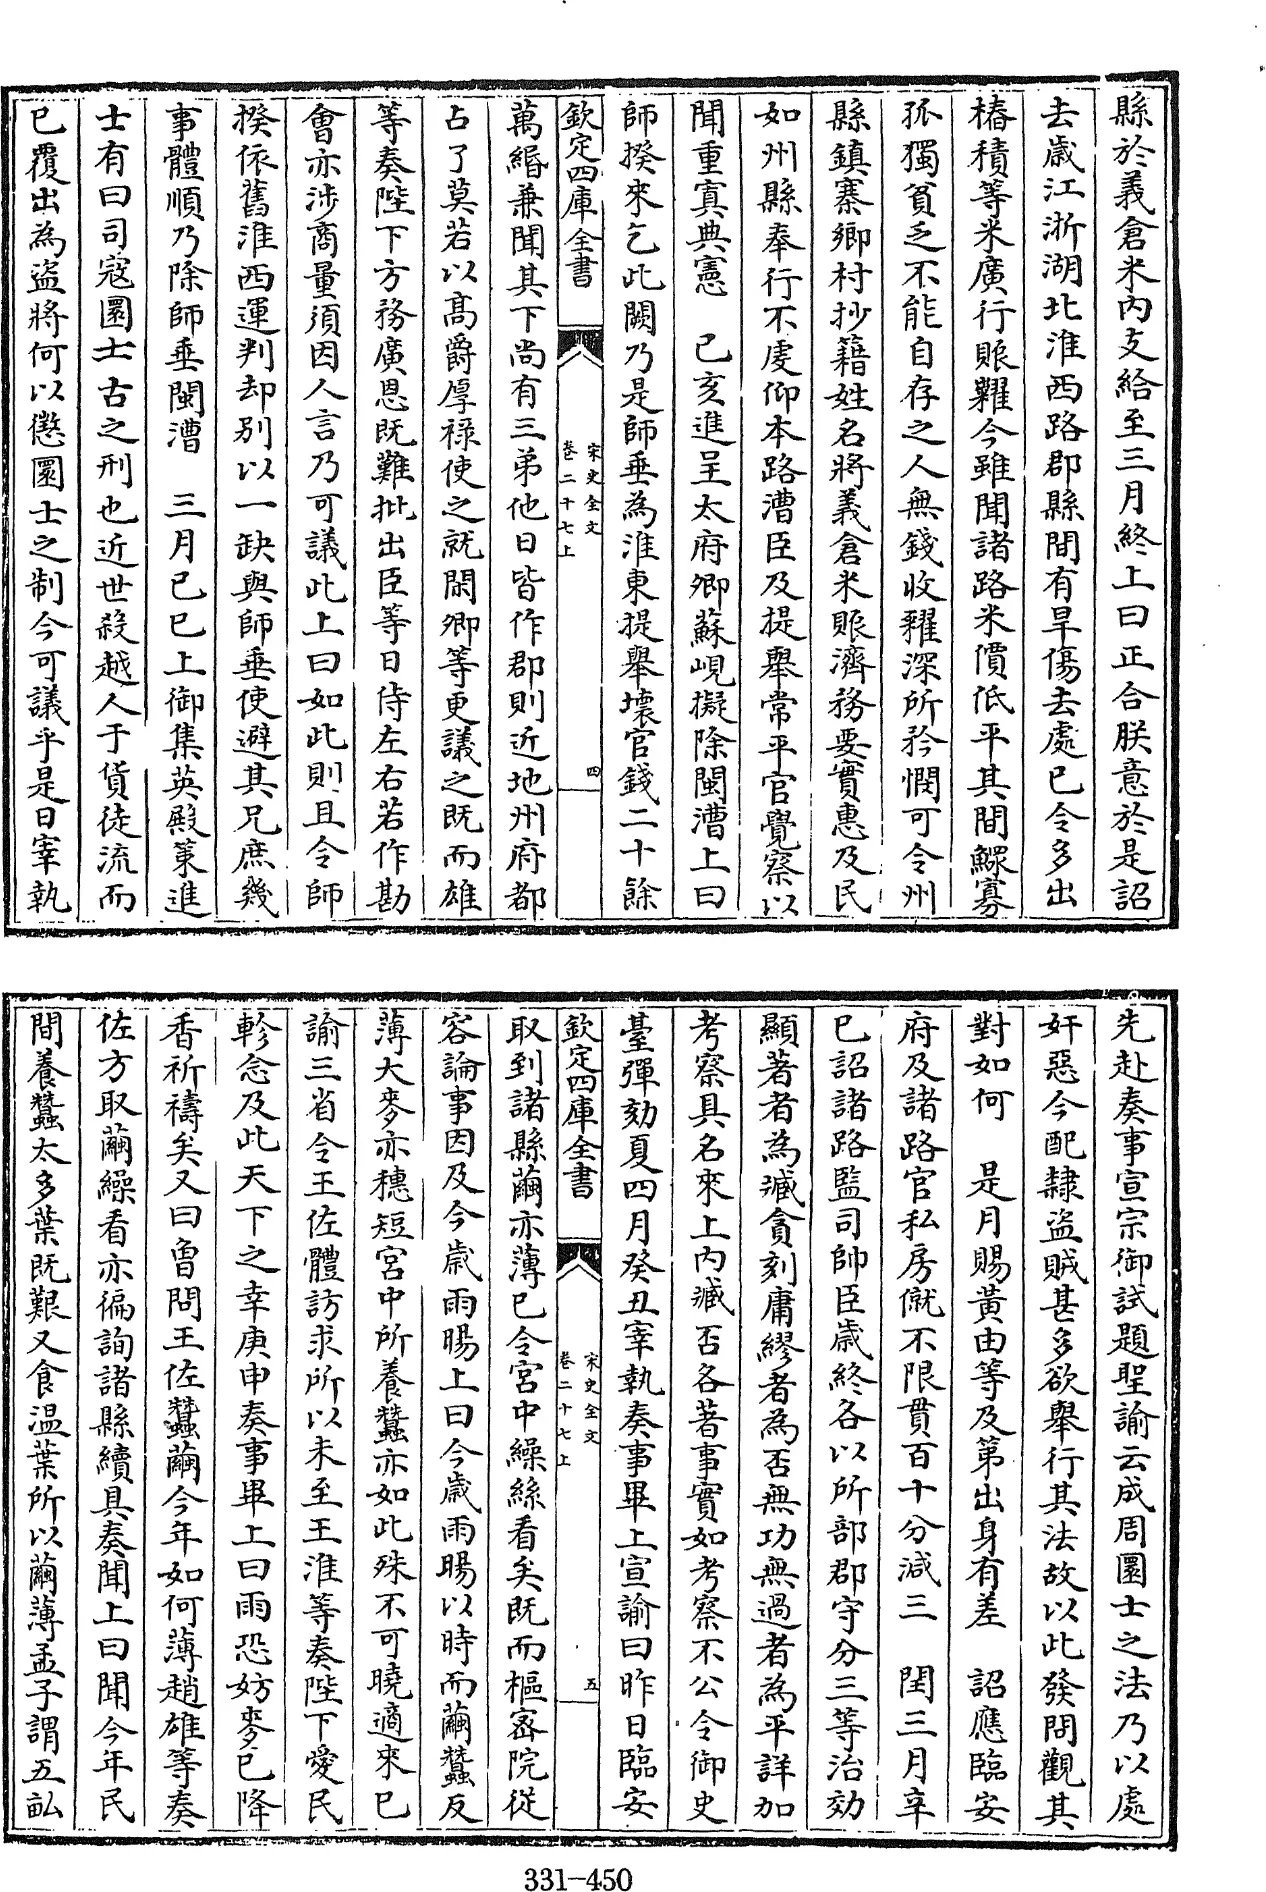 縣於義倉米内支給至三月終上曰正合朕意於是詔
去歲江浙湖北淮西路郡縣間有旱傷去處已令多出
樁積等米廣行賑糶今雖聞諸路米價低平其間鰥寡
孤獨貧乏不能自存之人無錢收糴深所矜憫可令州
縣鎮寨鄉村抄籍姓名將義倉米賑濟務要實惠及民
如州縣奉行不虔仰本路漕臣及提舉常平官覺察以
聞重寘典憲　已亥進呈太府卿蘇峴擬除閩漕上曰
師揆來乞此闕乃是師垂為淮東提舉壞官錢二十餘
欽定四庫全書　宋史全文　卷二十七上　四
萬緡兼聞其下尚有三弟他日皆作郡則近地州府都
占了莫若以高爵厚祿使之就閑卿等更議之既而雄
等奏陛下方務廣恩既難批出臣等日侍左右若作勘
會亦涉商量須因人言乃可議此上曰如此則且令師
揆依舊淮西運判却別以一缺與師垂使避其兄庶幾
事體順乃除師垂閩漕　三月已巳上御集英殿策進
士有曰司宼圜土古之刑也近世殺越人于貨徒流而
已覆出為盜將何以懲圜土之制今可議乎是日宰執
先赴奏事宣宗御試題聖諭云成周圜土之法乃以處
奸惡今配隸盜賊甚多欲舉行其法故以此發問觀其
對如何　是月賜黄由等及第出身有差　詔應臨安
府及諸路官私房僦不限貫百十分減三　閏三月辛
巳詔諸路監司帥臣歲終各以所部郡守分三等治効
顯著者為臧貪刻庸繆者為否無功無過者為平詳加
考察具名來上内臧否各著事實如考察不公令御史
臺彈劾夏四月癸丑宰執奏事畢上宣諭曰昨日臨安
欽定四庫全書　宋史全文　卷二十七上　五
取到諸縣繭亦薄已令宮中繰絲看矣既而樞密院從
容論事因及今歲雨暘上曰今歲雨暘以時而繭蠶反
薄大麥亦穗短宮中所養蠶亦如此殊不可曉適來已
諭三省令王佐體訪求所以未至王淮等奏陛下愛民
軫念及此天下之幸庚申奏事畢上曰雨恐妨麥已降
香祈禱矣又曰曾問王佐蠶繭今年如何薄趙雄等奏
佐方取繭繰看亦徧詢諸縣續具奏聞上曰聞今年民
間養蠶太多葉既艱又食温葉所以繭薄孟子謂五畝
331-450